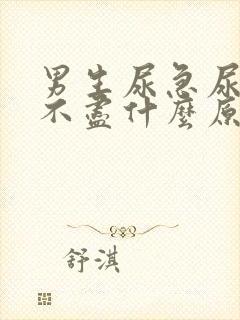 男生尿急尿
不盡什麼原
舒淇